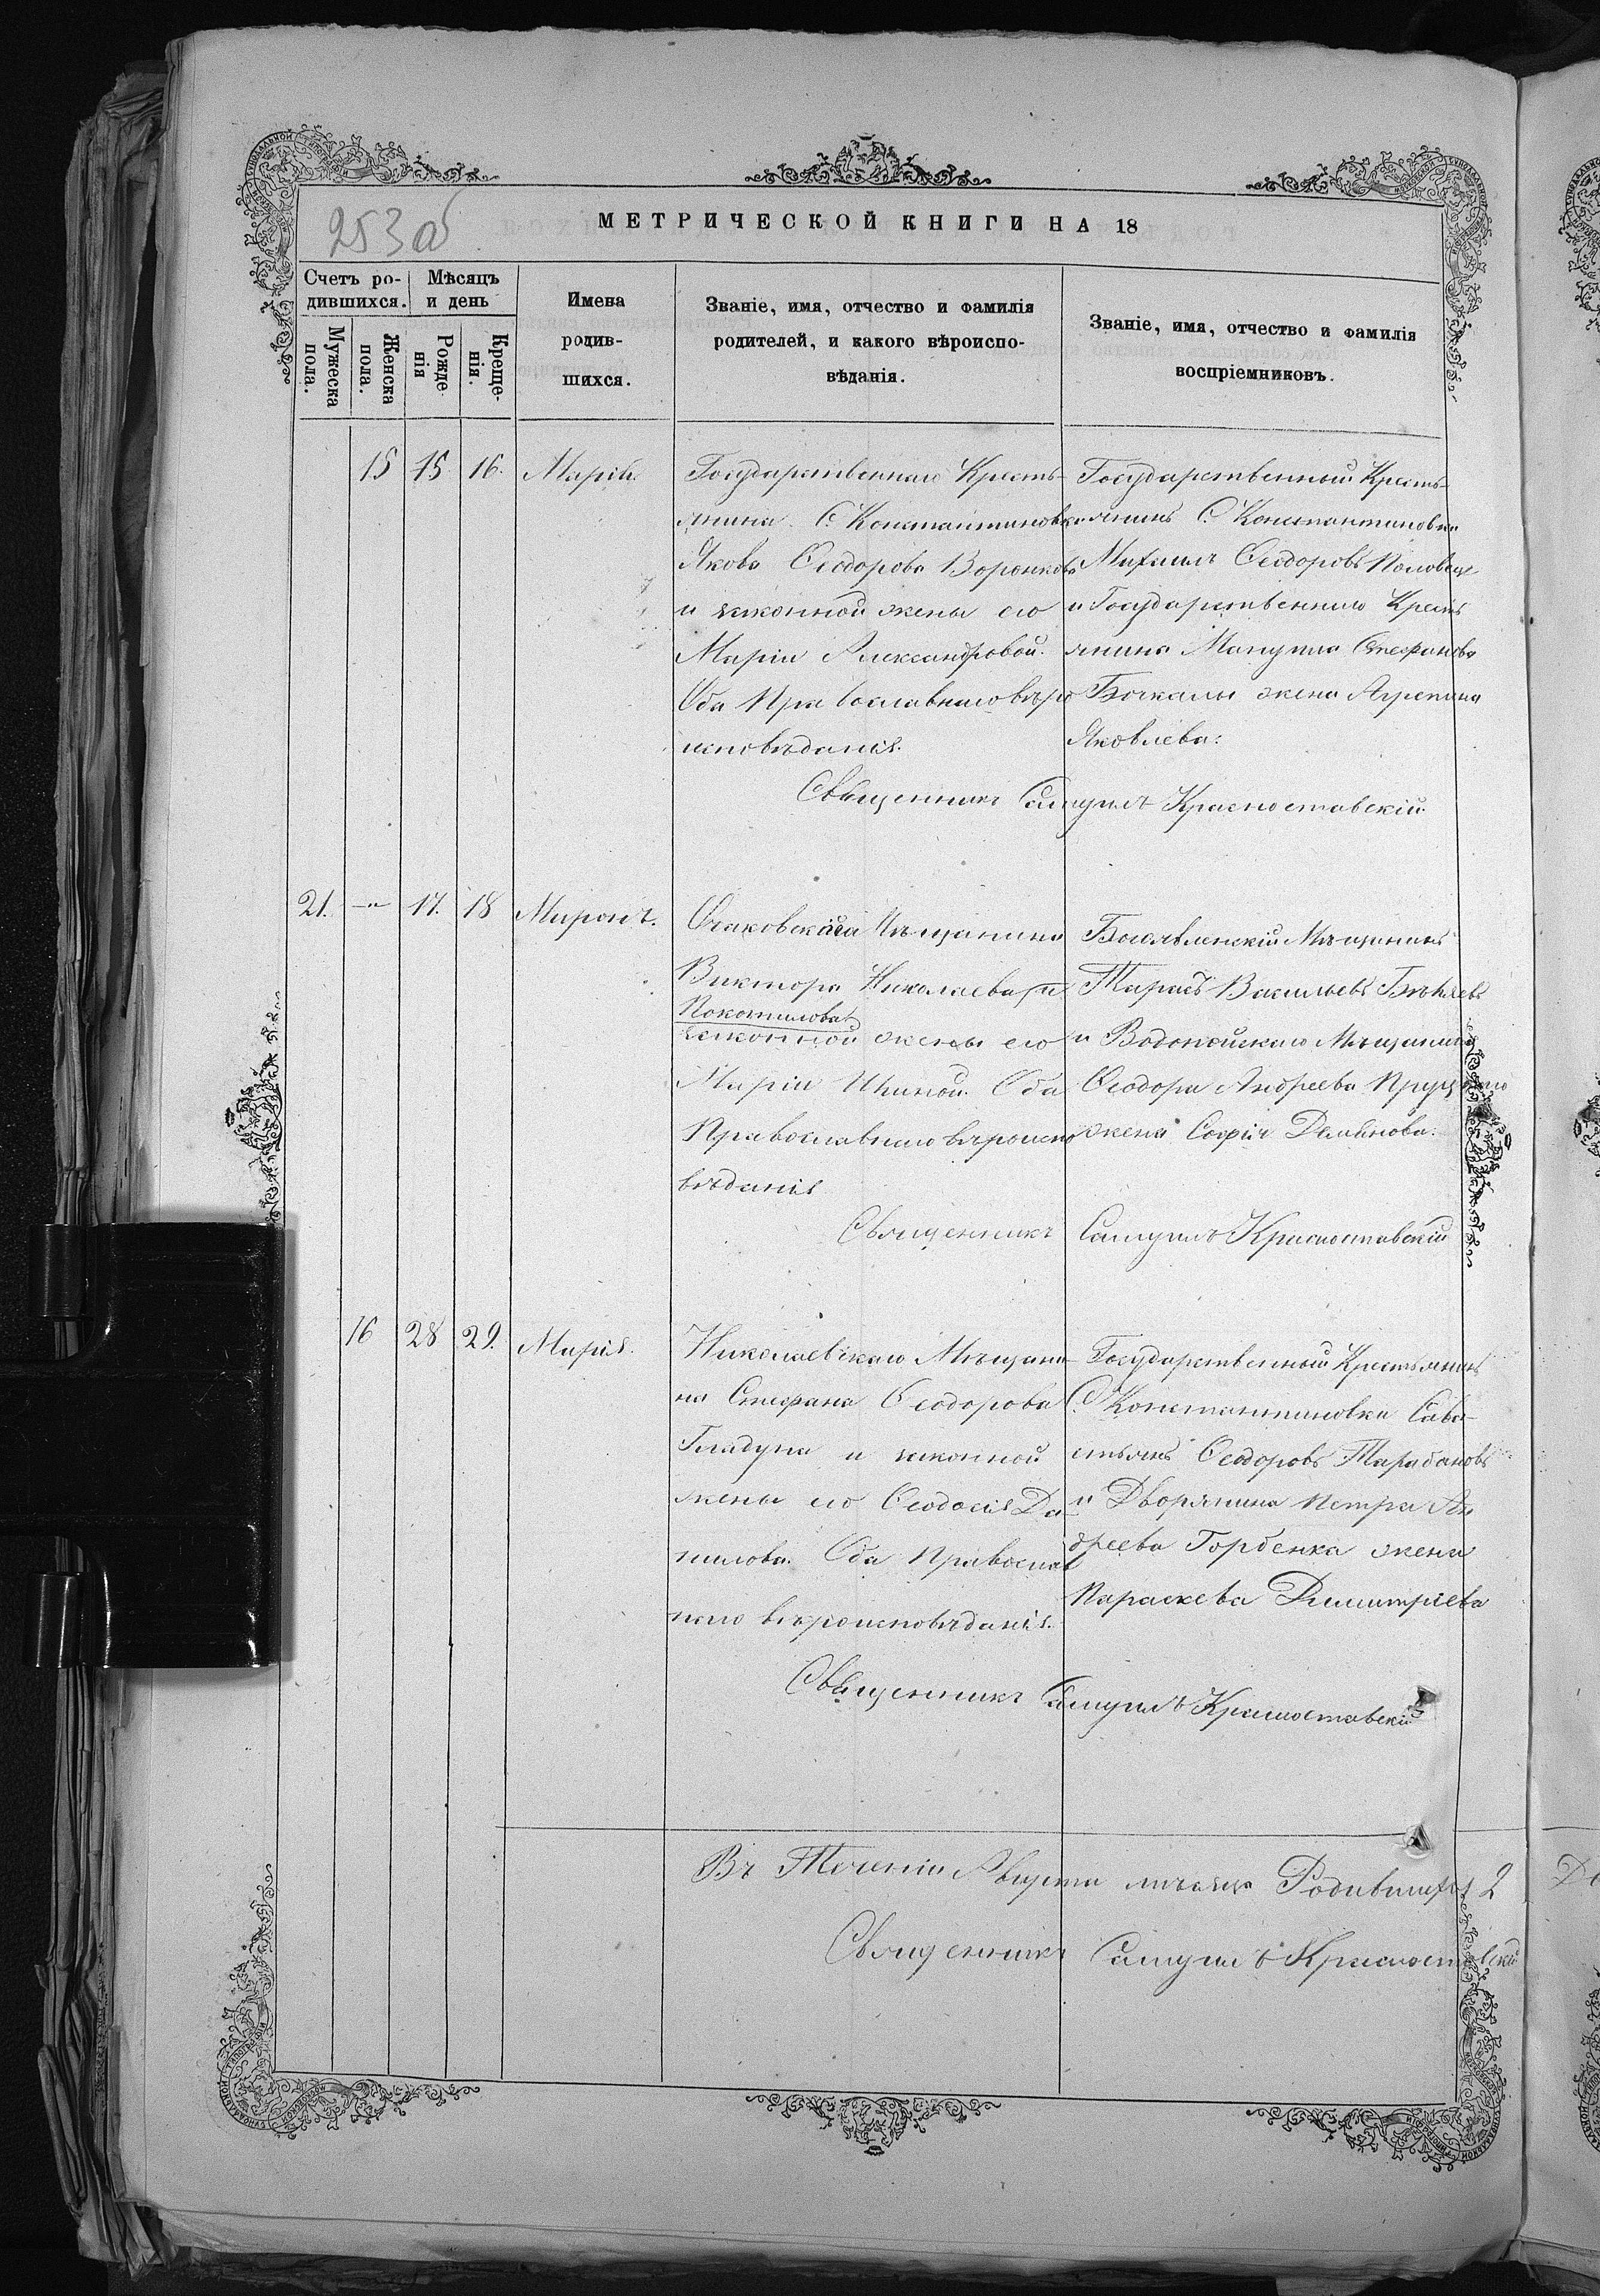 253 об
МЕТРИЧЕСКОЙ КНИГИ НА 18
Счетъ ро-
дившихся.
Мѣсяцъ
и день
Мужеска
пола.
Женска
пола.
Рожде
нія
Креще-
нія.
Имена
родив-
шихся.
Званіе, имя, отчество и фамилія
родителей, и какого вѣроиспо-
вѣданія.
Званіе, имя, отчество и фамилія
воспріемниковъ.
15 15. 16. Марія.
Государственнаго Кресть-
янина С. Константиновки
Якова Ѳеодорова Воронкова
и законной жены его
Маріи Александровой.
Оба Православнаго вѣро
исповѣданія.
Государственный Кресть-
янинъ С. Константиновки
Михаилъ Ѳеодоровъ Половец
и Государственнаго Кресть
янина Мануила Стефанова
Бочкалы жена Агрепина
Яковлева:
Священникъ Самуилъ Красноставскій.
21. —„ 17. 18 Миронъ.
Очаковскаго Мѣщанина
Виктора Николаева и
Покотилова
законной жены его
Маріи Оба
Православнаго вѣроиспо
вѣданія
Богоявленскій Мѣщанинъ
Тарасъ Васильевъ
и Водопойскаго Мѣщанина
Ѳеодора Андреева
жена Софія Демянова.
Священникъ Самуилъ Красноставскій
16 28 29. Марія.
Николаевскаго Мѣщани-
на Стефана Ѳеодорова
Гладуна и законной
жены его Ѳеодосія Да-
нилова. Оба Православ
наго вѣроисповѣданія.
Государственный Крестьянинъ
С. Константиновки Сава-
стьянъ Ѳеодоровъ Тарабановъ
и Дворянина Петра Ан
дреева Горбенка жена
Параскева Димитріева
Священникъ Самуилъ Красноставскій
Въ Теченіи Августа мѣсяца Родившихся 2
Священникъ Самуилъ Красноставскій